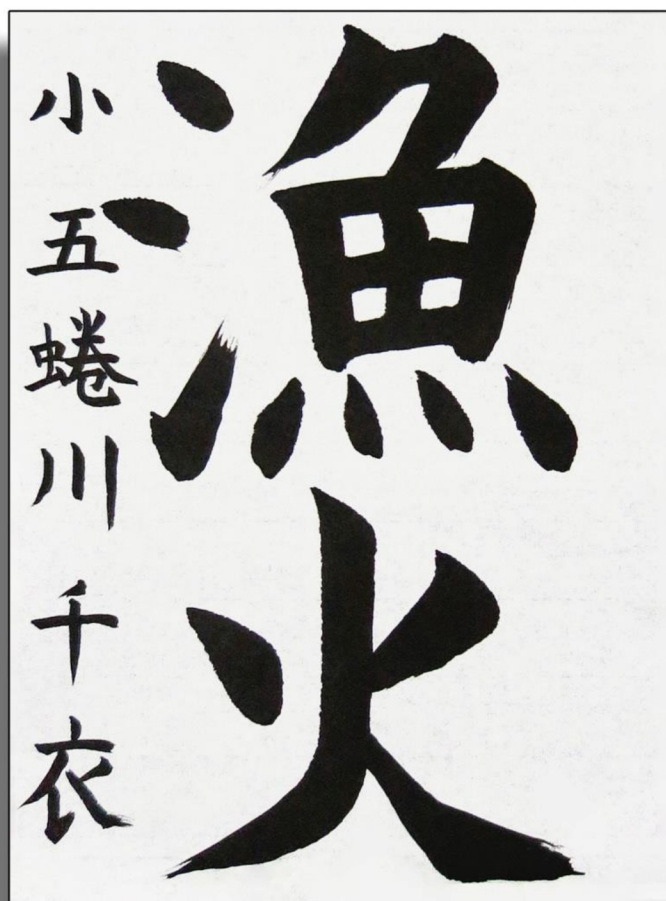 漁火
小五蜷川千衣